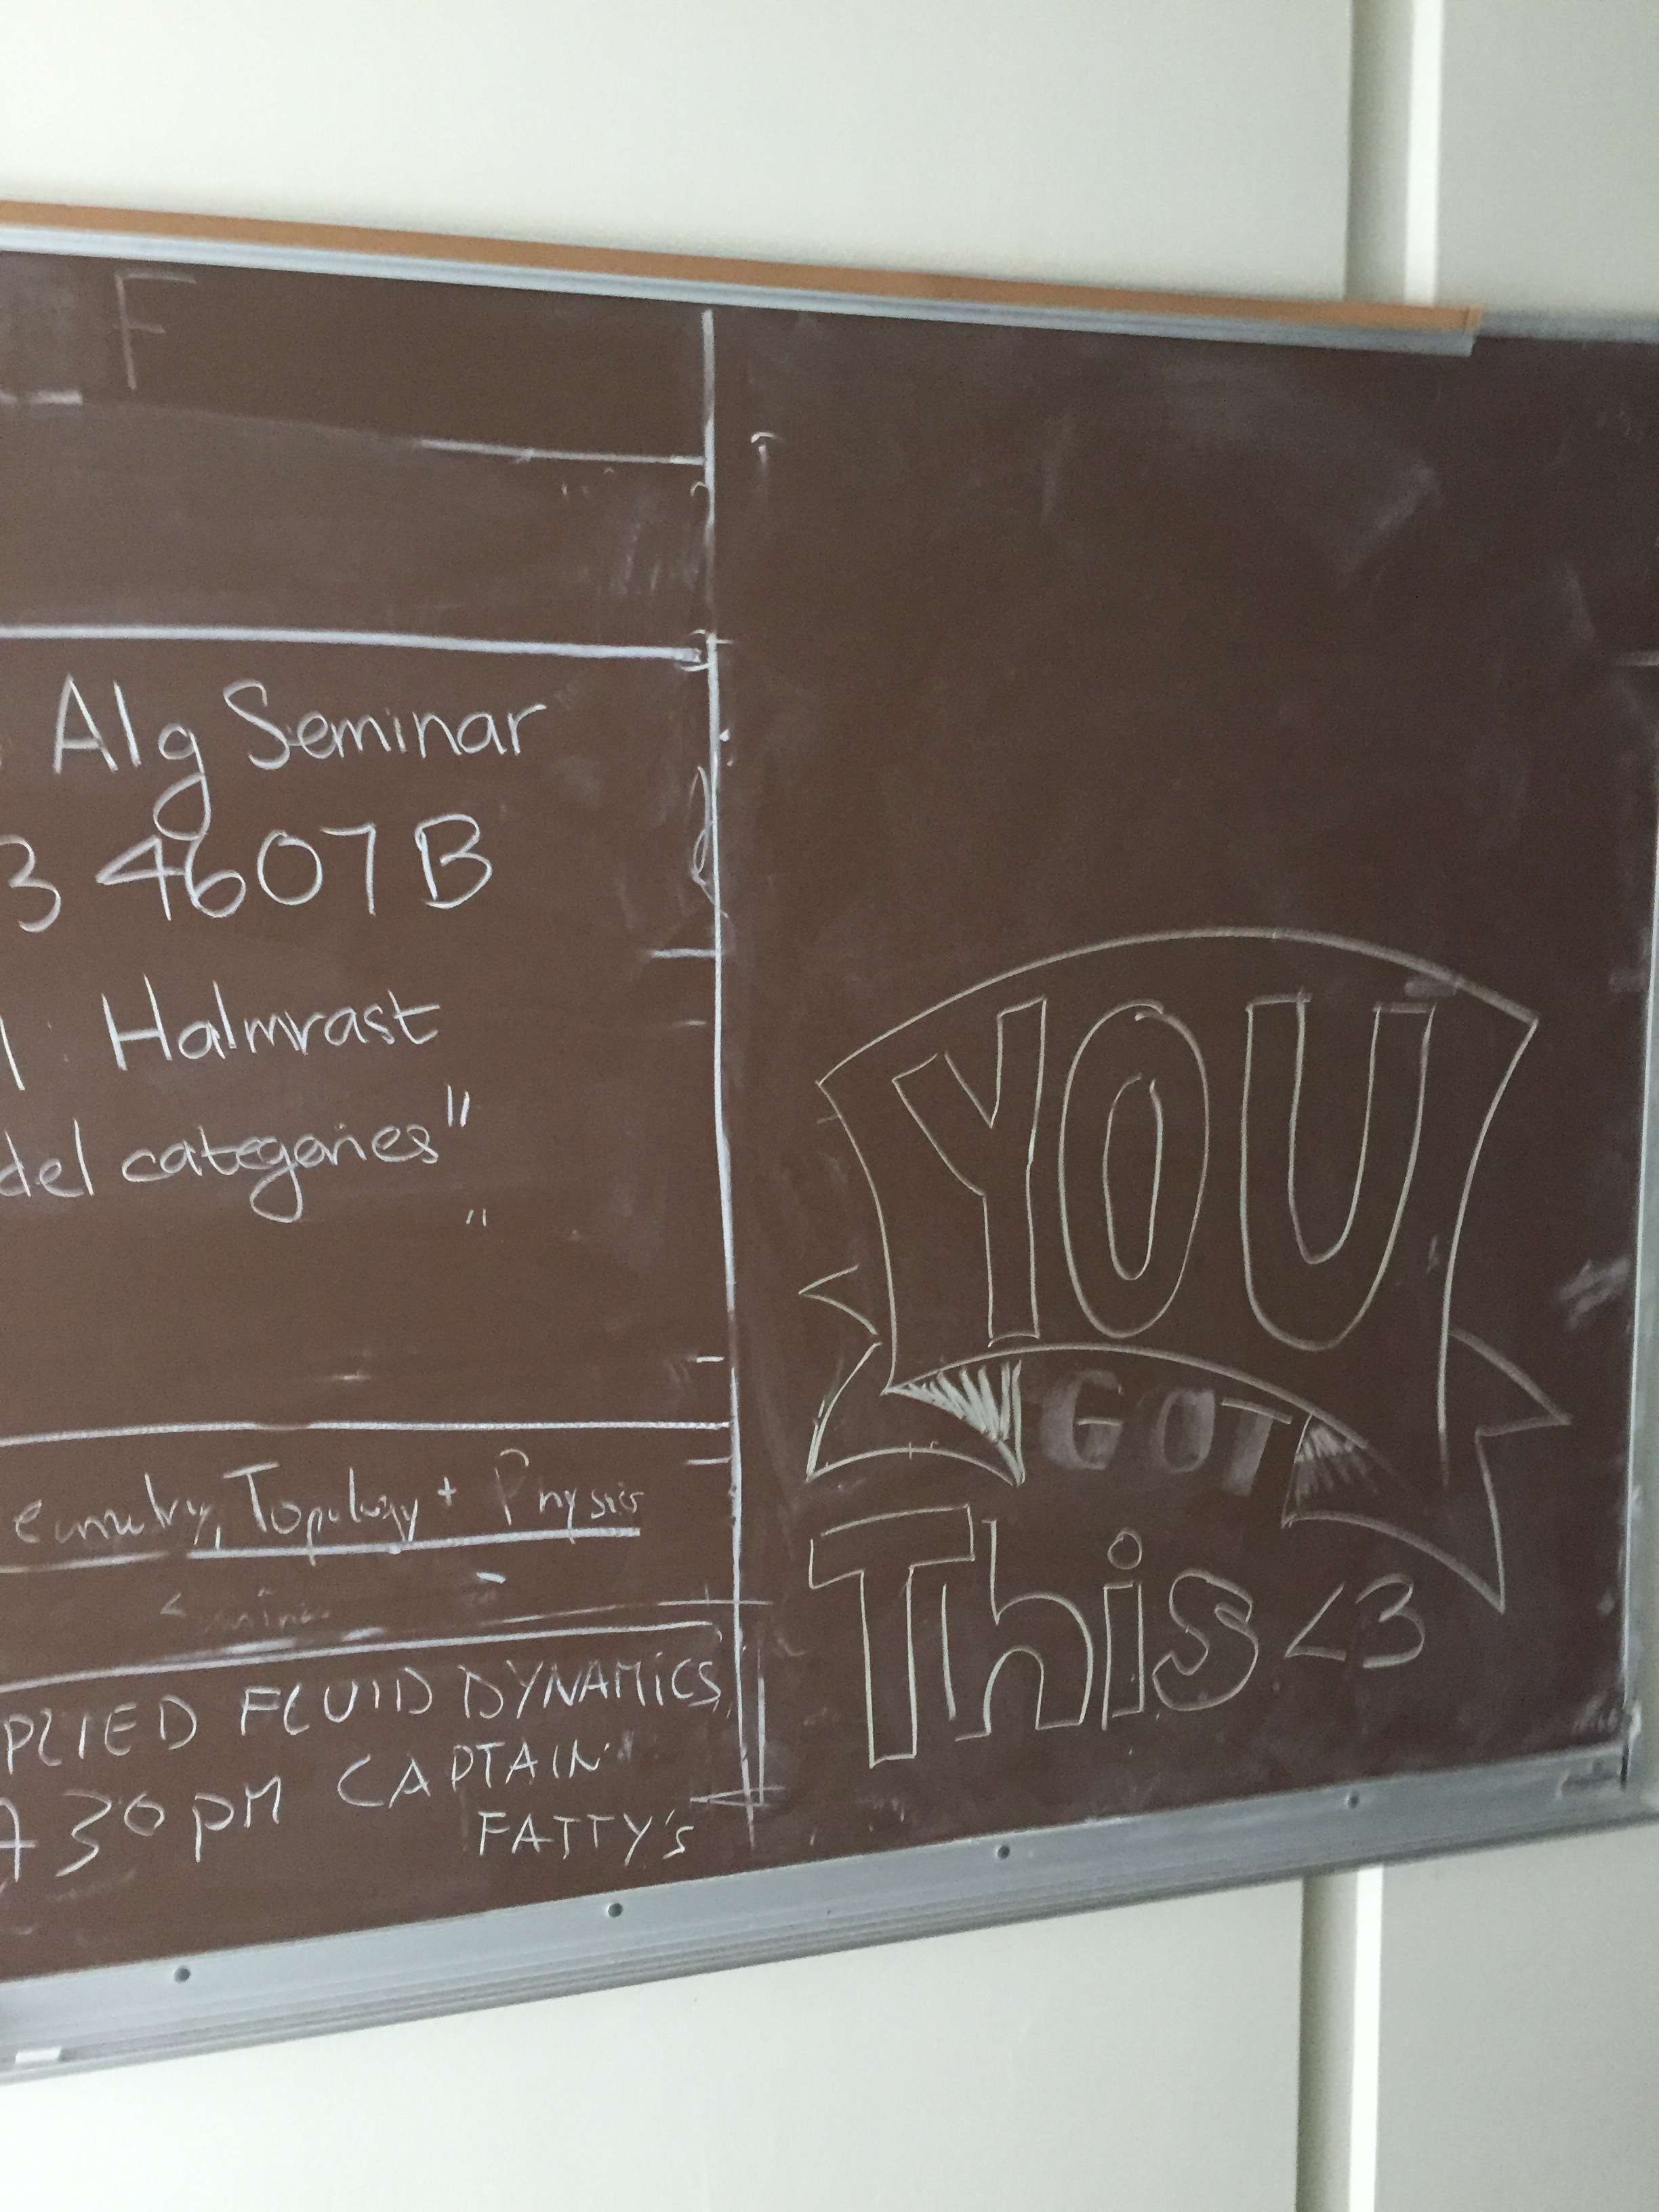 F
Alg Seminar
3 4607B
Halmrast
del categories"
"
eometry, Topology + Physics
PLIED FLUID DYNAMICS
730PM CAPTAIN
FATTY'S
YOU
GOT
This <3